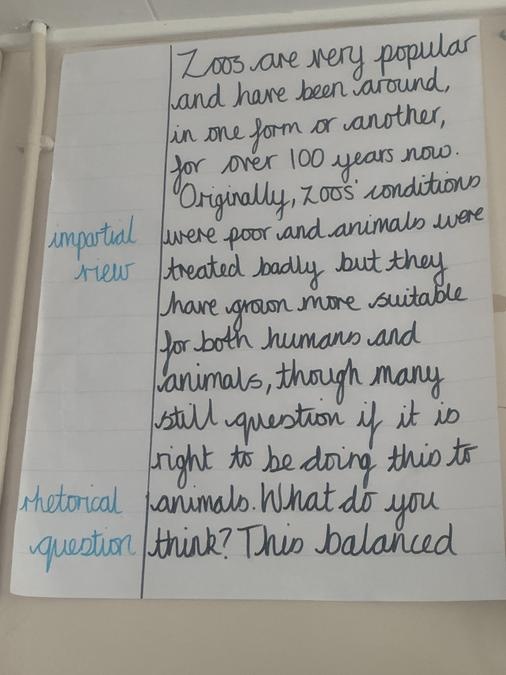 Zoos are very popular
and have been around,
in one form or another,
for over 100 years now.
Originally, zoos' conditions
impartial were poor and animals were
view treated badly but they
have grown more suitable
for both humans and
animals, though many
still question if it is
right to be doing this to
rhetorical animals. What do you
question think? This balanced